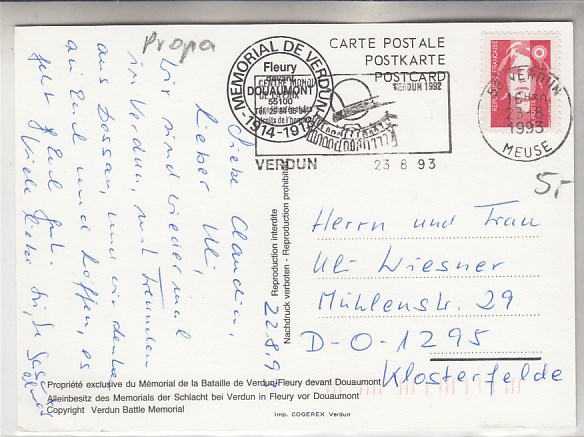 Propa
MEMORIAL DE VERDUN
Fleury
devant
DOUAUMONT
55100
1914-1918
CARTE POSTALE
POSTKARTE
POSTCARD
CENTRE MONDIAL
DE LA PAIX
droits de l'homme
VERDUN 1992
VERDUN
23 8 93
55 VERDUN
16H
23-8
1993
MEUSE
5,-
22.8.9
Liebe Claudia,
lieber Uli,
wir sind wieder mal
in Verdun, mit Freunden
aus Dessau, und wir denken
an Euch und hoffen, es
geht Euch gut.
Viele liebe
Herrn und Frau
Uli Wiesner
Mühlenstr. 29
D-O-1295
Klosterfelde
Reproduction interdite
Nachdruck verboten - Reproduction prohibited
Propriété exclusive du Mémorial de la Bataille de Verdun/Fleury devant Douaumont
Alleinbesitz des Memorials der Schlacht bei Verdun in Fleury vor Douaumont
Copyright Verdun Battle Memorial
Imp. COGEREX Verdun